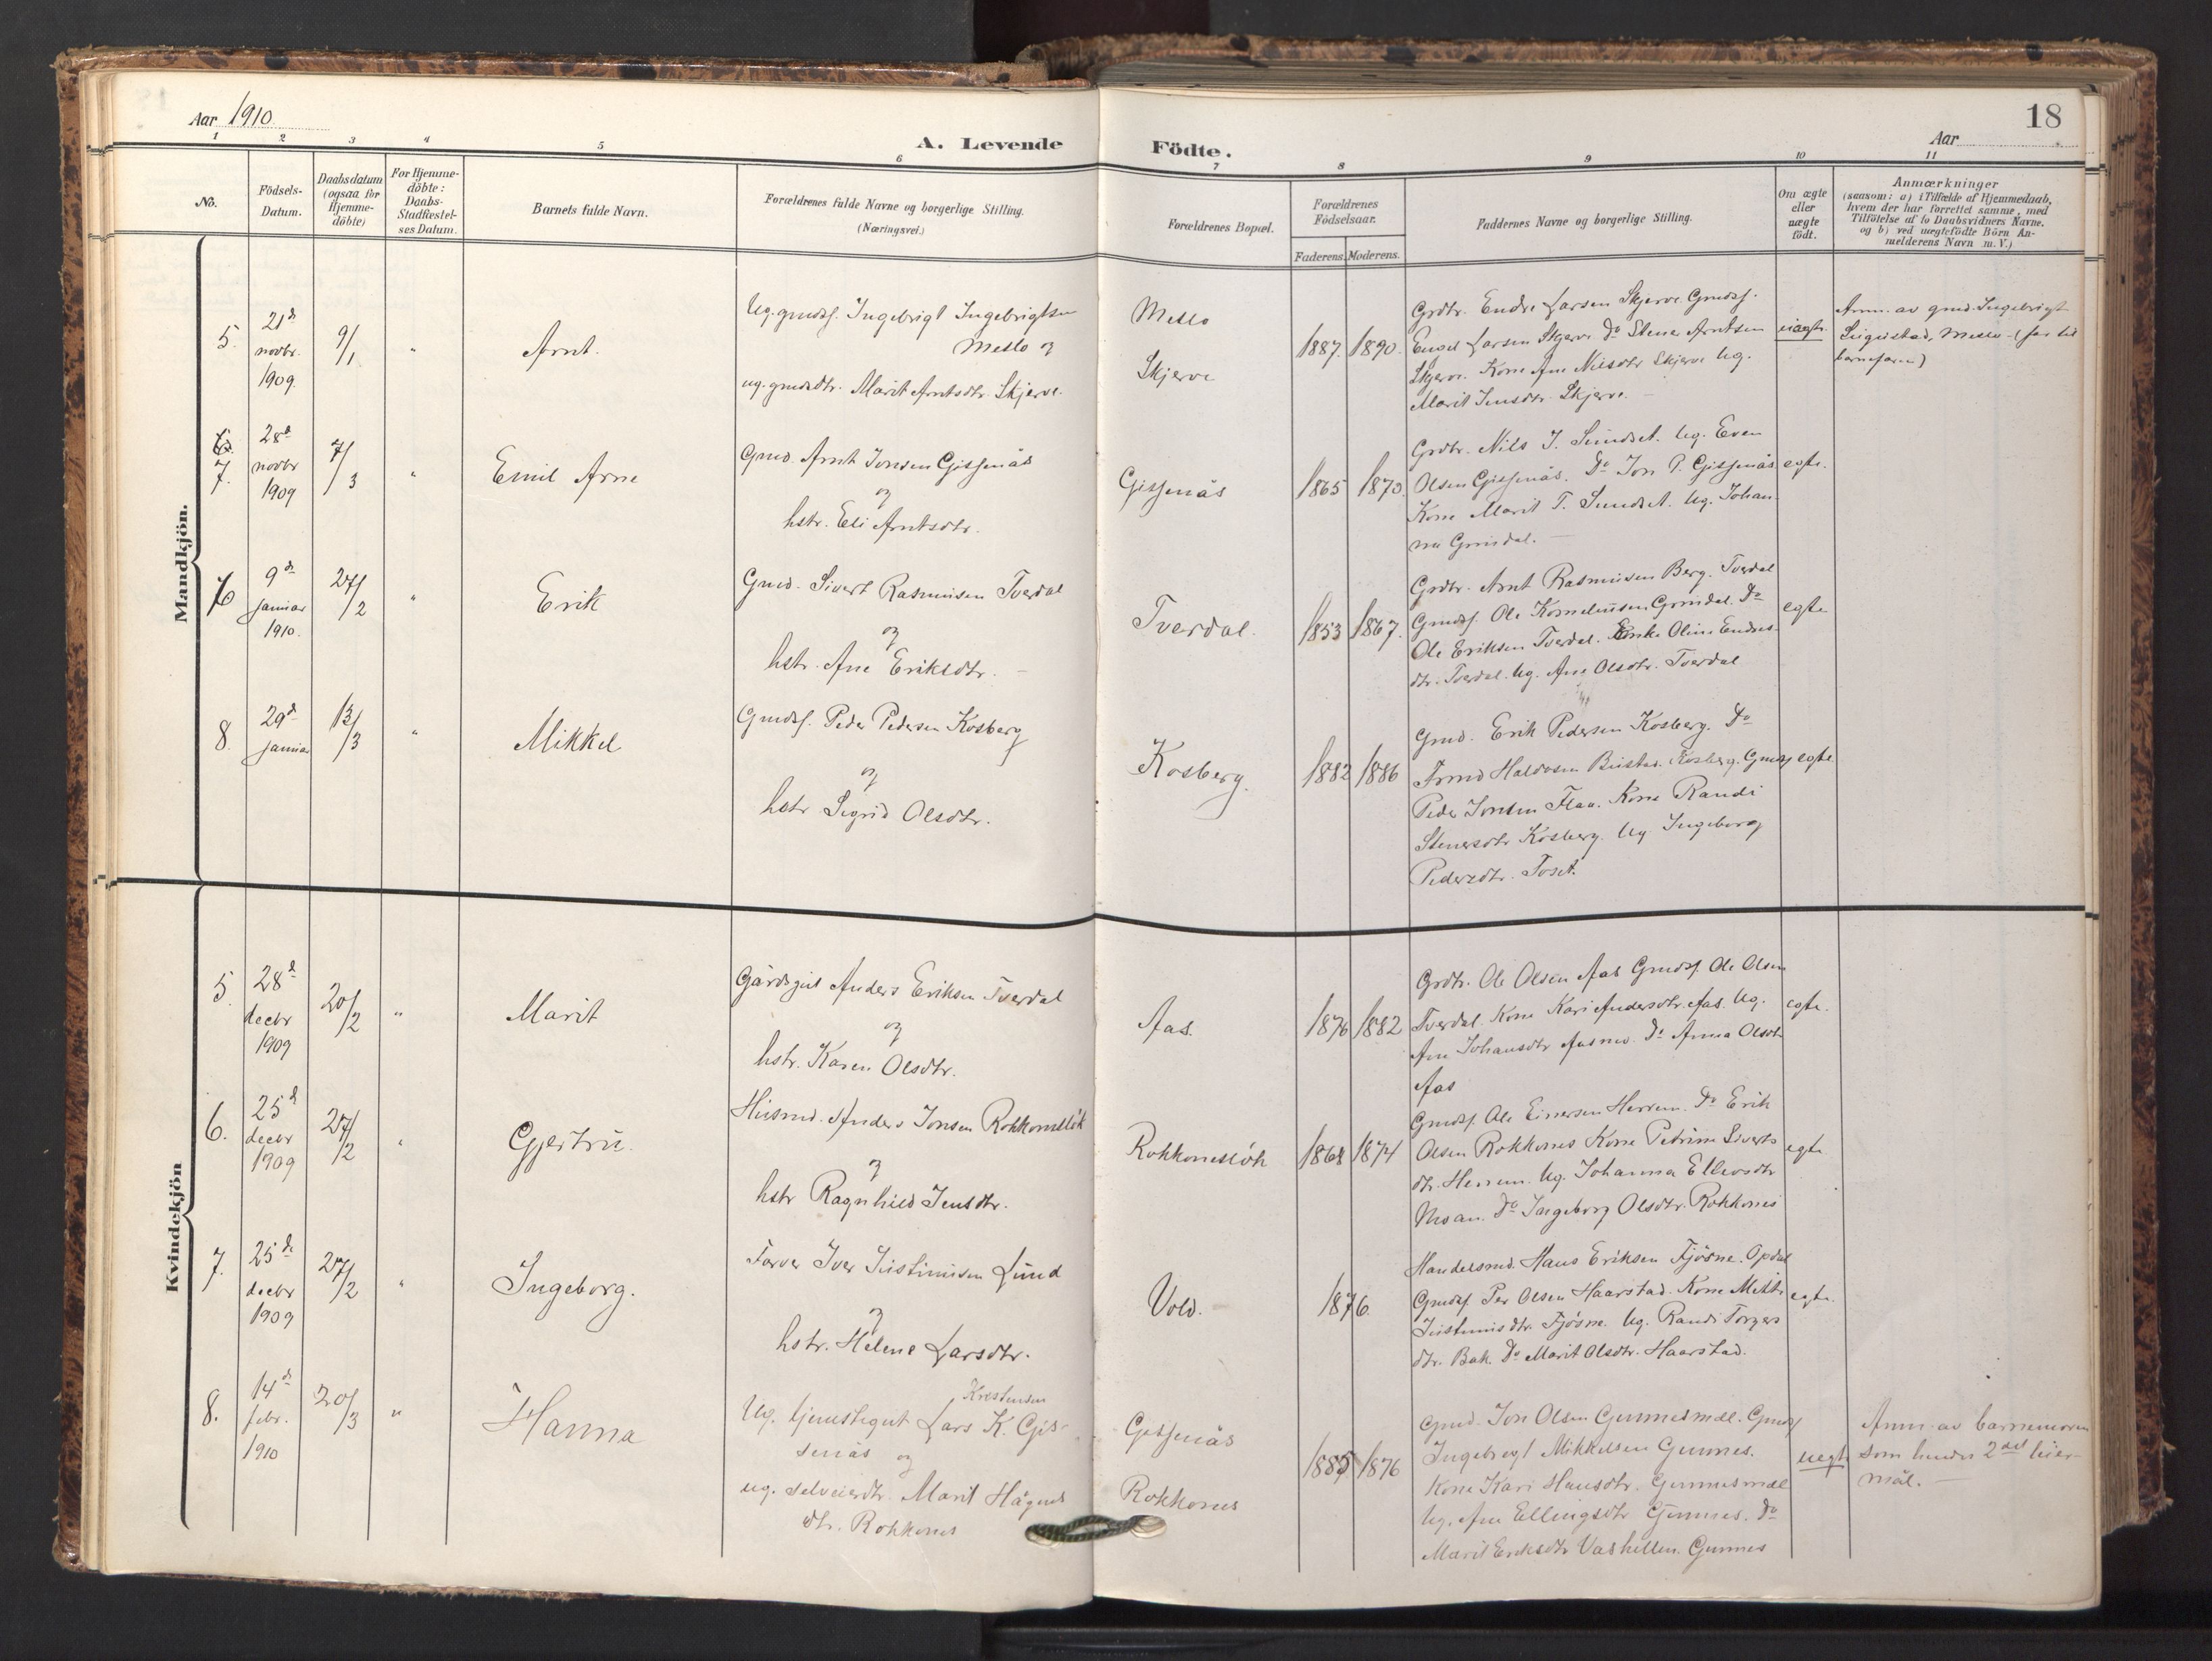 Aar 1910.
A. Levende Födte.
18
Aar
1 2 3 4 5 6 7 8 9 10 11
No.
Födsels-
Datum.
Daabsdatum
(ogsaa for
Hjemme-
döbte)
For Hjemme-
döbte:
Daabs-
Stadfæstel-
ses Datum.
Barnets fulde Navn.
Forældrenes fulde Navne og borgerlige Stilling.
(Næringsvei.)
Forældrenes Bopæl.
Forældrenes
Födselsaar.
Faderens. Moderens.
Faddernes Navne og borgerlige Stilling.
Om ægte
eller
uægte
födt.
Anmærkninger
(saasom: a) i Tilfælde af Hjemmedaab,
hvem der har forrettet samme, med
Tilföielse af to Daabsvidners Navne.
og b) ved uægtefödte Börn An-
melderens Navn m. V.)
Mandkjön.
5.
21de
novbr.
1909.
9/1
"
Arnt.
Ug. gmdsf. Ingebrigt Ingebrigtsen
Mello og
ug. gmdsdtr. Marit Arntsdtr. Skjerve.
Mello
Skjerve
1887. 1890.
Grdbr. Endre Larsen Skjerve. Gmdsf.
Larsen Skjerve Do Stener Arntsen
Skjerve. Kone Ane Nilsdtr Skjerve Ug.
Marit Jensdtr. Skjerve. –
uægte
Anm. av gmd. Ingebrigt
Mello – (far til
barnefaren)
7.
28d
novbr
1909
7/3
"
Emil Arne
Gmd. Arnt Jonsen Gisnås
og
hstr. Eli Arntsdtr.
Gisnås
1865 1870.
Grdbr. Nils J. Sundset. Ug. Even
Olsen Gisnås. Do Jon P. Gisnås
Kone Marit T. Sundset. Ug. Johan-
na Grindal. –
egte.
6
9de
januar
1910.
27/2
"
Erik
Gmd. Sivert Rasmusen Tverdal
og
hstr. Ane Eriksdtr. –
Tverdal.
1853 1867.
Grdbr. Arnt Rasmusen Berg. Tverdal
Gmdsf. Ole Korneliusen Grindal. Do
Ole Eriksen Tverdal. Enke Oline Endres-
dtr. Tverdal. Ug. Ane Olsdtr. Tverdal
egte
8.
29d
januar
13/3
"
Mikkel
Gmdsf. Peder Pedersen Kosberg
og
hstr Sigrid Olsdtr.
Kosberg.
1882 1886
Gmd. Erik Pedersen Kosberg. Do
Trond Haldosen Kosberg. Gmdsf
Peder Jonsen Flaa. Kone Randi
Stenersdtr Kosberg. Ug Ingeborg
Pedersdtr. Toset.
egte.
Kvindekjön
5.
28d
decbr
1909
20/2
"
Marit
Gårdsgut Anders Eriksen Tverdal
og
hstr. Karen Olsdtr.
Aas.
1876 1882
Grdbr. Ole Olsen Aas Gmdsf. Ole Olsen
Tverdal. Kone Kari Andersdtr. Aas. Ug.
Ane Johansdtr Aasmo. Do Anna Olsdtr
Aas
egte.
6.
25d
decbr
1909
27/2
"
Gjertru.
Husmd. Anders Jonsen Rokkoneslök
og
hstr Ragnhild Jensdtr.
Rokkoneslök
1868 1874
Gmdsf. Ole Einersen Herrem. Do Erik
Olsen Rokkones Kone Petrine Siverts
dtr. Herrem. Ug. Johanna Ellevsdtr
Moan. Do Ingeborg Olsdtr. Rokkones
egte
7.
25de
decbr
1909
27/2
"
Ingeborg.
Farver Iver Justinusen Lund
og
hstr. Helene Larsdtr.
Vold.
1876.
Handelsmd. Hans Eriksen Fjösne. Opdal
Gmdsf. Per Olsen Haarstad. Kone Mette
Justinusdtr. Fjösne. Ug. Randi Torgers
dtr. Bak. Do Marit Olsdtr. Haarstad.
egte.
8.
14de
febr.
1910
20/3
"
Hanna
Kristensen
Ug. tjenstegut Lars K. Gis-
senås og
ug. selveierdtr. Marit Hågens
dtr. Rokkones
Gisnås
Rokkones
1885 1876
Gmd. Jon Olsen Gunnesmæl. Gmdsf
Ingebrigt Mikkelsen Gunnes.
Kone Kari Hansdtr. Gunnesmæl
Ug. Ane Ellingsdtr Gunnes. Do
Marit Eriksdtr Vashellen. Gunnes
uegte
Anm. av barnemoren
som hendes 2det leier-
mål. –